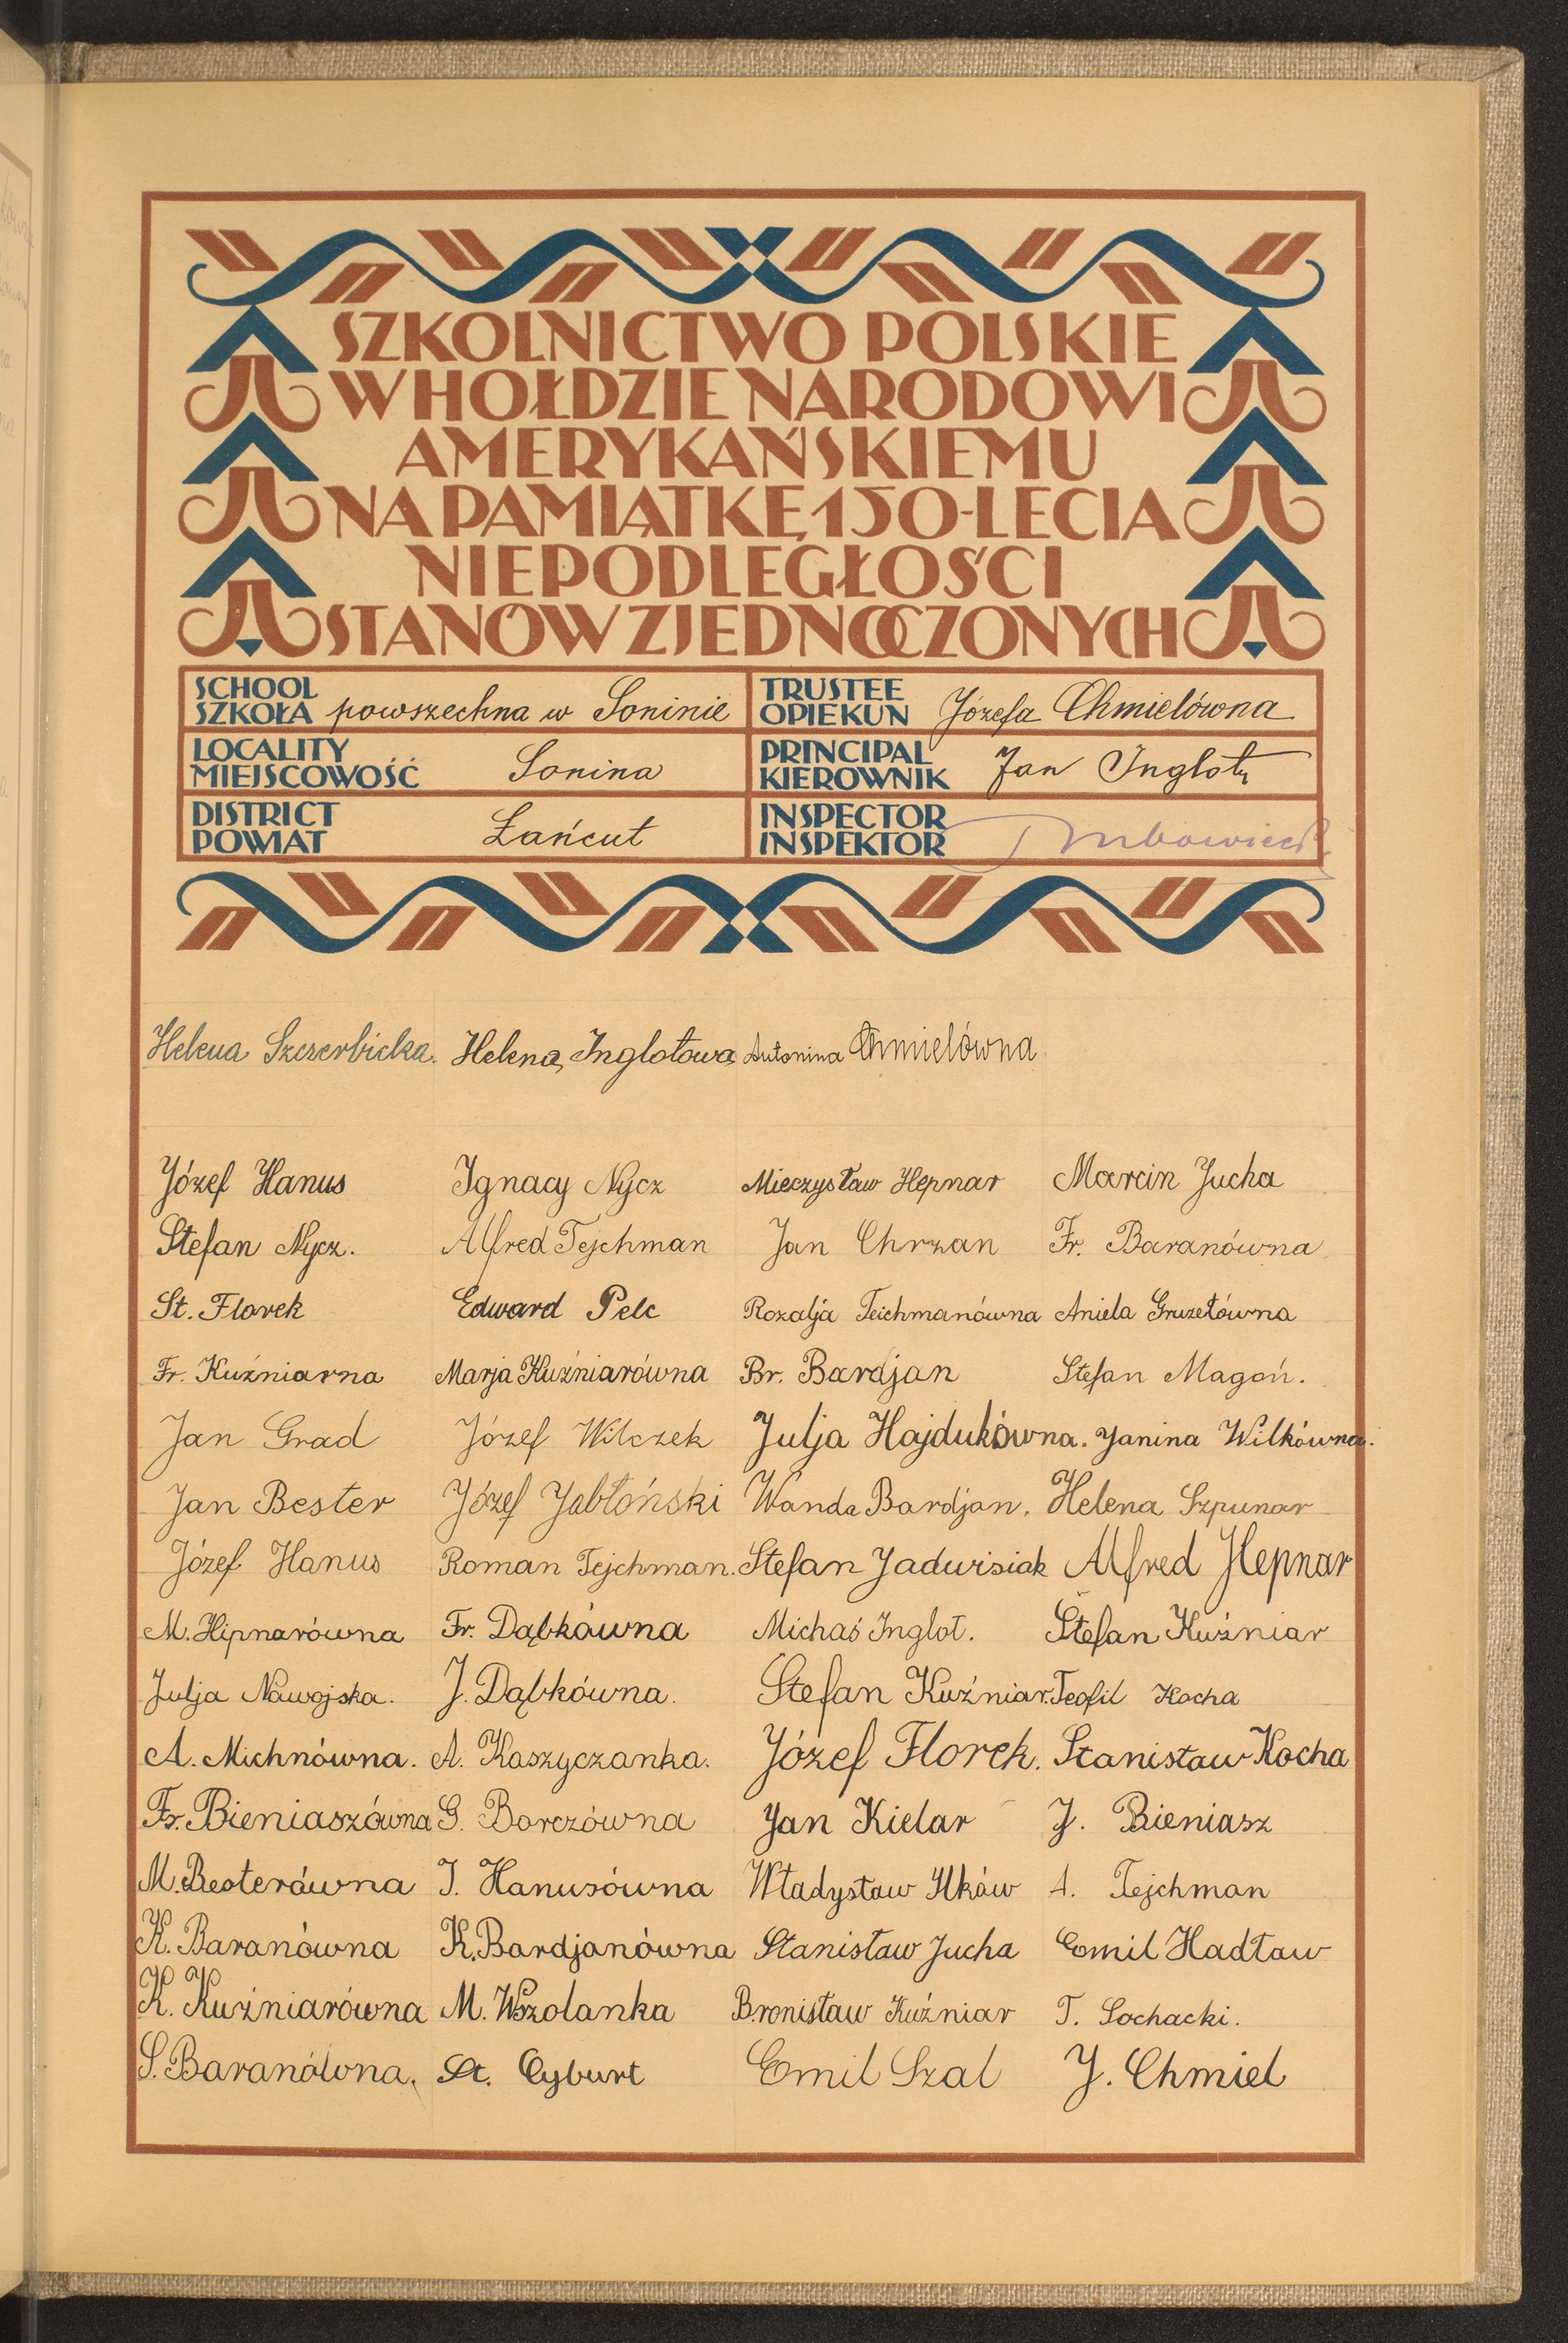 SZKOLNICTWO POLSKIE
W HOŁDZIE NARODOWI
AMERYKAŃSKIEMU
NA PAMIĄTKĘ 150-LECIA
NIEPODLEGŁOŚCI
STANÓW ZJEDNOCZONYCH
SCHOOL
SZKOŁA powszechna w Soninie
TRUSTEE
OPIEKUN Józefa Chmielówna
LOCALITY
MIEJSCOWOŚĆ Sonina
PRINCIPAL
KIEROWNIK Jan Inglot
DISTRICT
POWIAT Łańcut
INSPECTOR
INSPEKTOR
Helena Szczerbicka. Helena Inglotowa Antonina Chmielówna
Józef Hanus Ignacy Nycz Mieczysław Hepnar Marcin Jucha
Stefan Nycz. Alfred Tejchman Jan Chrzan Fr. Baranówna
St. Florek Edward Pelc Rozalja Teichmanówna Aniela Gruzełówna
Fr. Kuźniarna Marja Kuźniarówna Br. Bardjan Stefan Magoń.
Jan Grad Józef Wilczek Julja Hajdukówna. Janina Wilkówna.
Jan Bester Józef Jabłoński Wanda Bardjan. Helena Szpunar
Józef Hanus Roman Tejchman. Stefan Jadwisiak Alfred Hepnar
M. Hipnarówna Fr. Dąbkówna Michaś Inglot. Stefan Kuźniar
Julja Nawojska. J. Dąbkówna. Stefan Kuźniar. Teofil Kocha
A. Michnówna. A. Kaszyczanka. Józef Florek. Stanisław Kocha
Fr. Bieniaszówna G. Barczówna Jan Kielar J. Bieniasz
M. Besterówna J. Hanusówna Władysław Ilków A. Tejchman
K. Baranówna K. Bardjanówna Stanisław Jucha Emil Hadław
K. Kuźniarówna M. Wszolanka Bronisław Kuźniar T. Sochacki.
S. Baranówna. St. Cyburt Emil Szal J. Chmiel